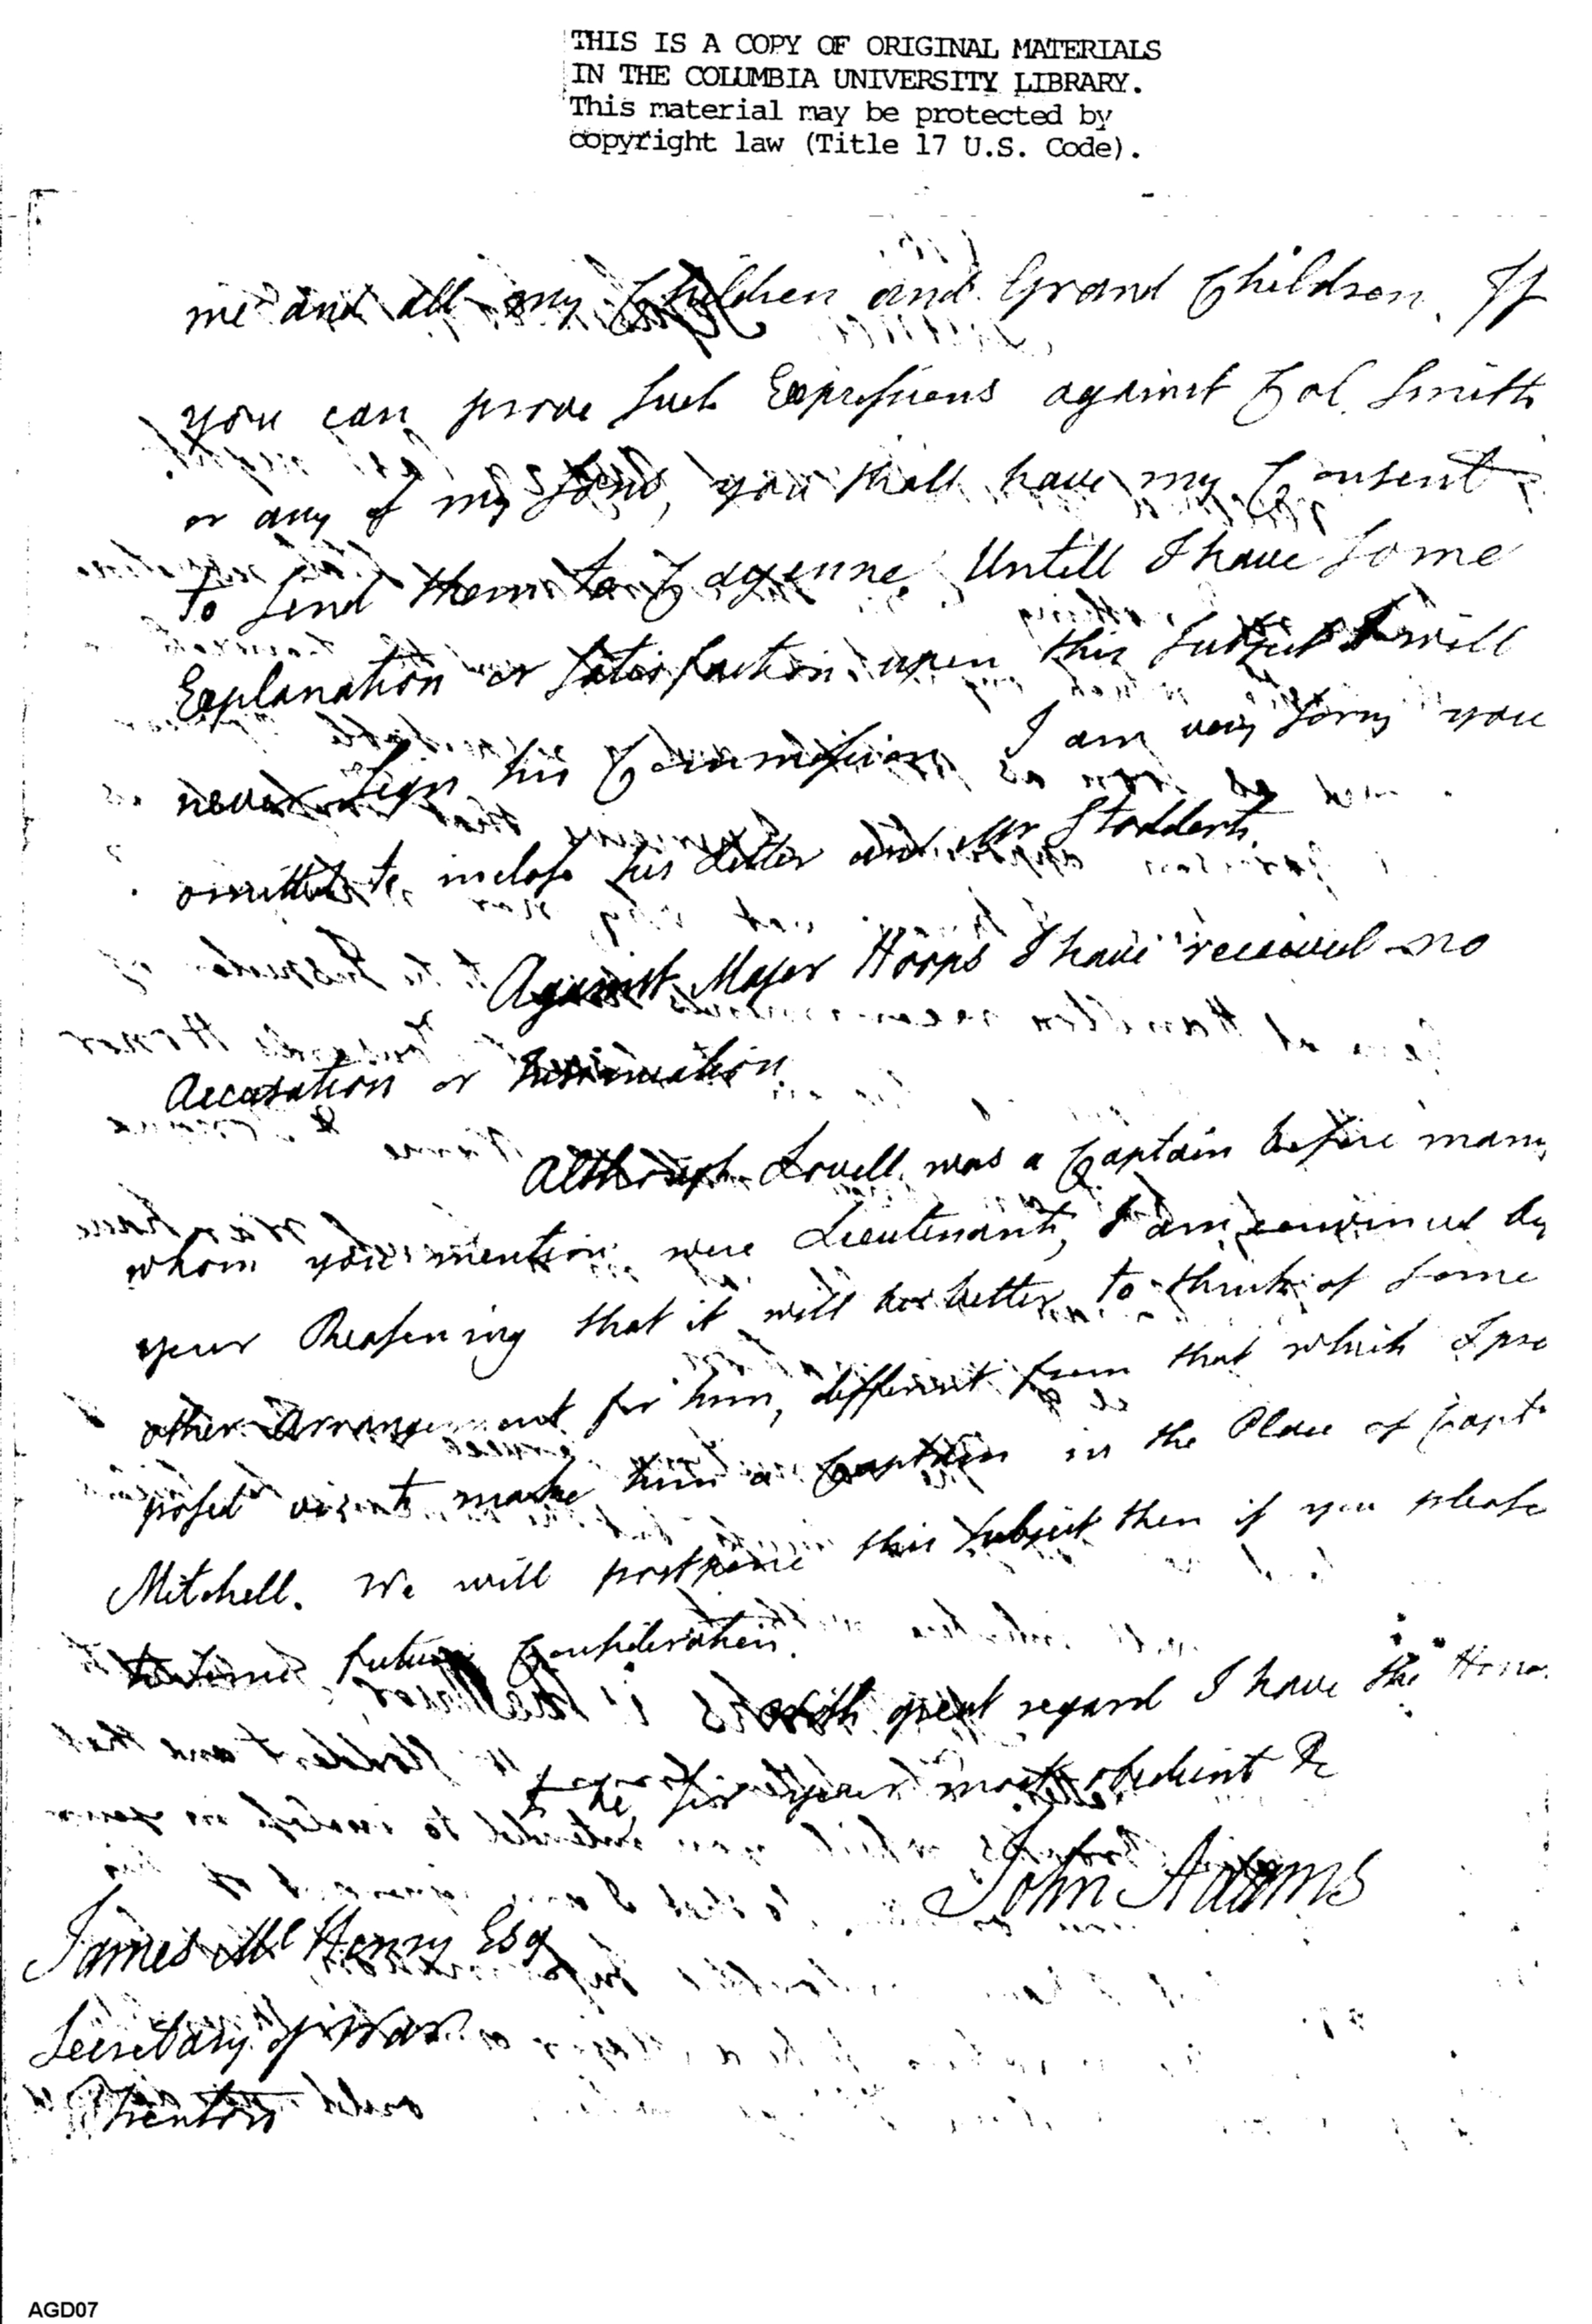 THIS IS A COPY OF ORIGINAL MATERIALS
IN THE COLUMBIA UNIVERSITY LIBRARY.
This material may be protected by
copyright law (Title 17 U.S. Code).
me and all my Children and Grand Children. If
you can prove such Expressions against Col. Smith
or any of my Sons, you shall have my Consent
to send them to Cayenne. Untill I have some
Explanation or Satisfaction upon this Subject I will
never sign his Commission. I am very sorry you
omitted to inclose his Letter and Mr Stodderts.
Against Major Hoops I have received no
Accusation or Insinuation.
Although Lovell was a Captain before many
whom you mention were Lieutenants, I am convinced by
your Reasoning that it will be better to think of some
other Arrangement for him, different from that which I pro
posed viz to make him a Captain in the Place of Capt.
Mitchell. We will postpone this subject then if you please
to some future Consideration.
With great regard I have the Honor
to be, Sir your most obedient &c
John Adams
James McHenry Esq
Secretary of War
Trenton
AGD07